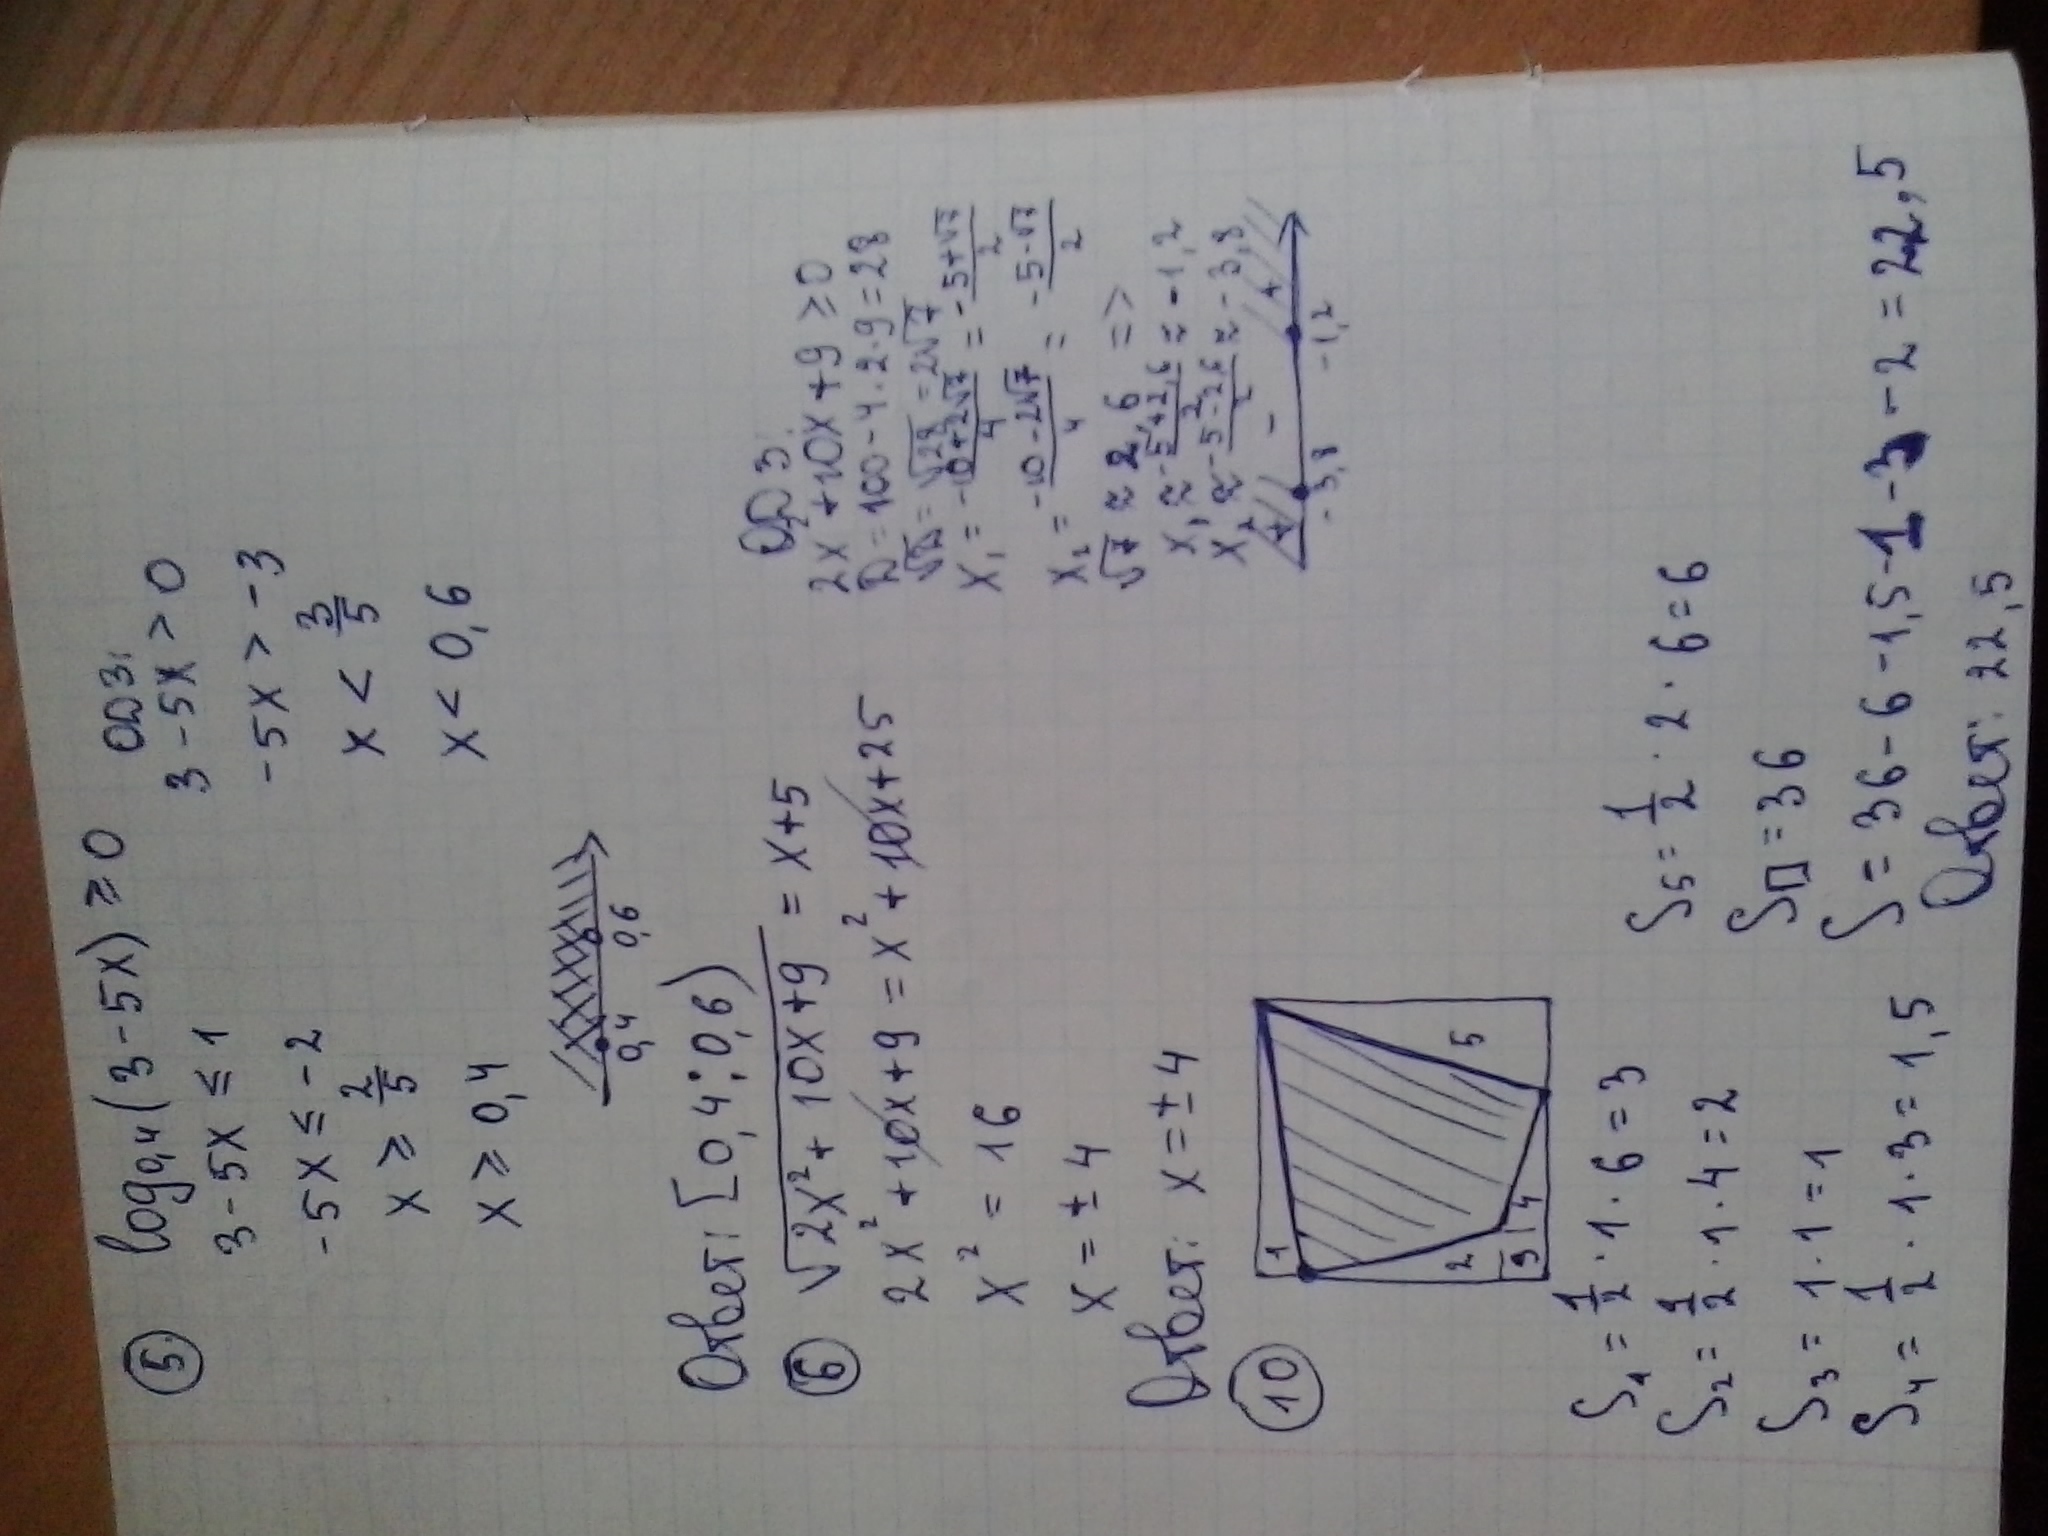 5. log0,4(3-5x) ≥ 0
ОДЗ:
3-5x ≤ 1
3-5x > 0
-5x ≤ -2
-5x > -3
x ≥ 2/5
x < 3/5
x ≥ 0,4
x < 0,6
0,4 0,6
Ответ: [0,4; 0,6)
6 √(2x²+10x+9) = x+5
2x²+10x+9 = x²+10x+25
x² = 16
x = ± 4
Ответ: x = ± 4
ОДЗ:
2x²+10x+9 ≥ 0
D = 100-4·2·9 = 28
√D = √28 = 2√7
x₁ = (-10+2√7)/4 = (-5+√7)/2
x₂ = (-10-2√7)/4 = (-5-√7)/2
√7 ≈ 2,6 =>
x₁ ≈ (-5+2,6)/2 ≈ -1,2
x₂ ≈ (-5-2,6)/2 ≈ -3,8
+ - +
-3,8 -1,2
10
1
2
5
3
4
S₁ = 1/2 · 1 · 6 = 3
S₂ = 1/2 · 1 · 4 = 2
S₃ = 1 · 1 = 1
S₄ = 1/2 · 1 · 3 = 1,5
S₅ = 1/2 · 2 · 6 = 6
S□ = 36
S = 36-6-1,5-1-3-2 = 22,5
Ответ: 22,5